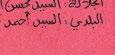 الجلالة : السيد حسن ا
البلدي : السيد أحمد